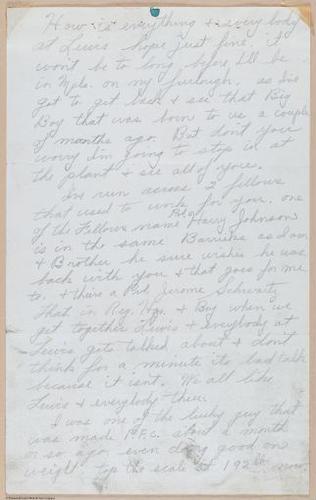 How is everything & every body
at Lewis hope just fine. it
wont be to long before I'll be
in Mpls. on my furlough. as I've
got to get back & see that Big
Boy that was born to us a couple
of months ago. But dont you
worry I'm going to stop in at
the plant & see all of youse.
I've run across 2 fellows
that used to work for you. one
of the Fellows name Pvt. Harry Johnson
is in the same Barricks as I am
& Brother he sure wishes he was
back with you & that goes for me
to. & theirs a Pvt. Jerome Schwartz
that in Reg. Hqs. & Boy when we
get together Lewis & everybody at
Lewis gets talked about & dont
think for a minute its bad talk
because it isnt. We all like
Lewis & everybody then.
I was one of the lucky guy that
was made P.F.C. about a month
or so ago. even doing good on
weight top the scale at 192 lb now.